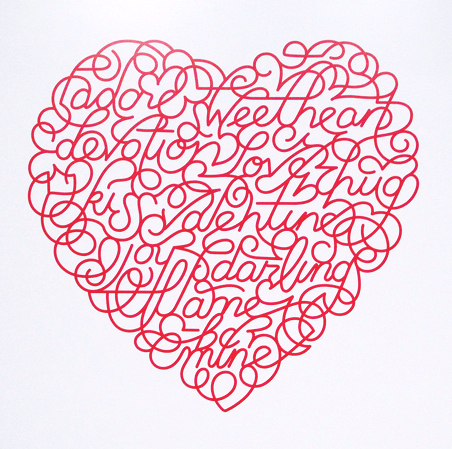 adore sweetheart
devotion love hug
kiss valentine
darling
flame
be mine